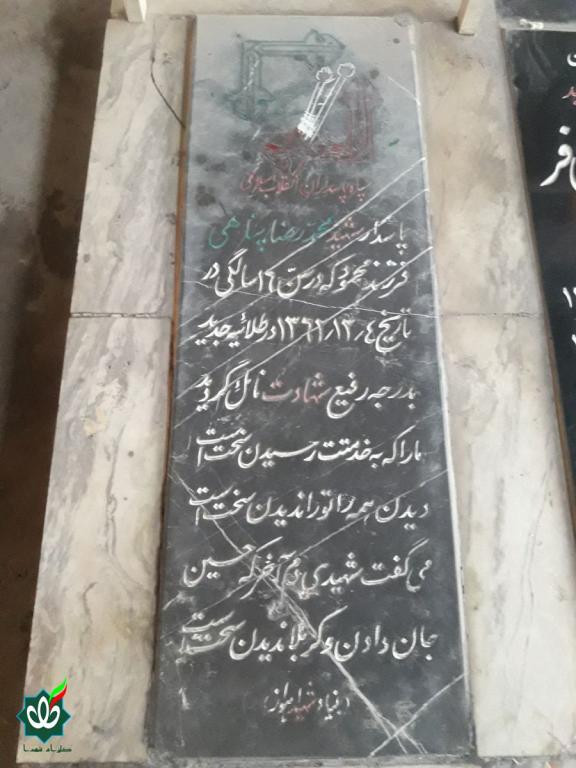 سپاه پاسداران انقلاب اسلامی
پاسدار شهید محمدرضا پناهی
فرزند محمود که در سن ۱۶ سالگی در
تاریخ ۱۳۶۲/۱۲/۴ در طلائیه جدید
بدرجه رفیع شهادت نائل گردید
ما را که به خدمتت رسیدن سخت است
دیدن همه را تو را ندیدن سخت است
می گفت شهیدی دم آخر که حسین
جان دادن و کربلا ندیدن سخت است
(بنیاد شهید اهواز)